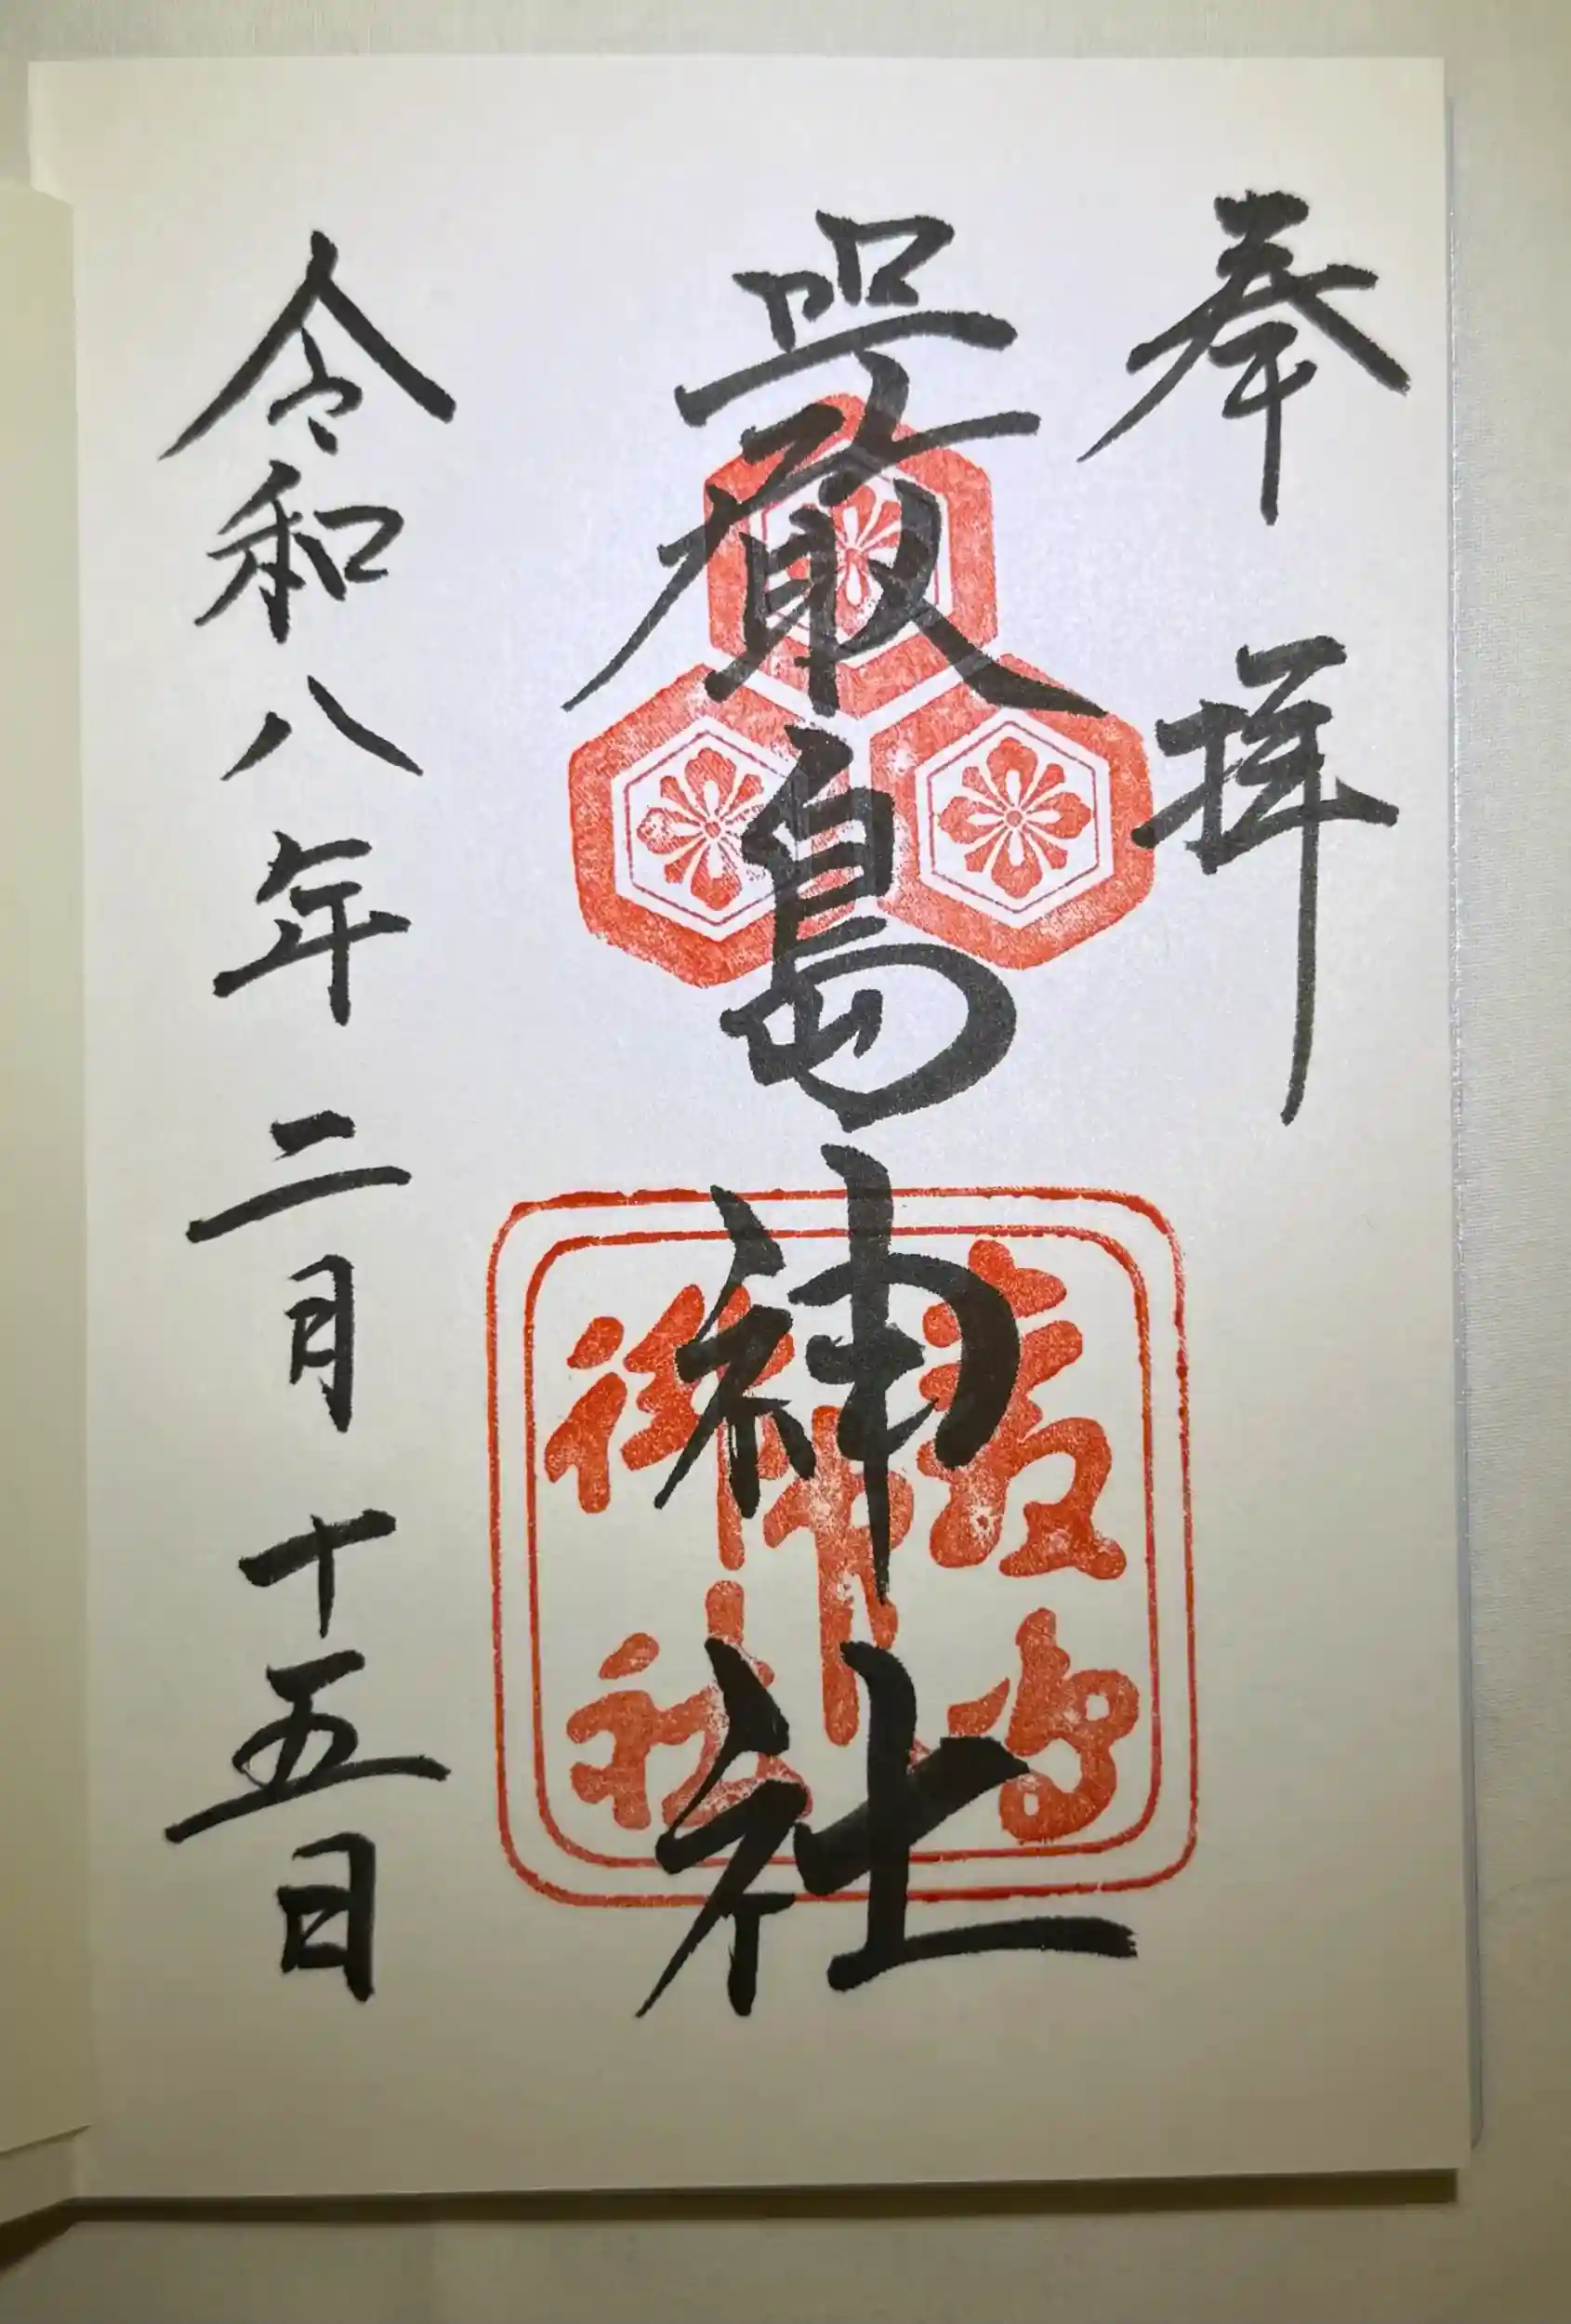 奉拝
嚴島神社
嚴島
神社
令和八年二月十五日